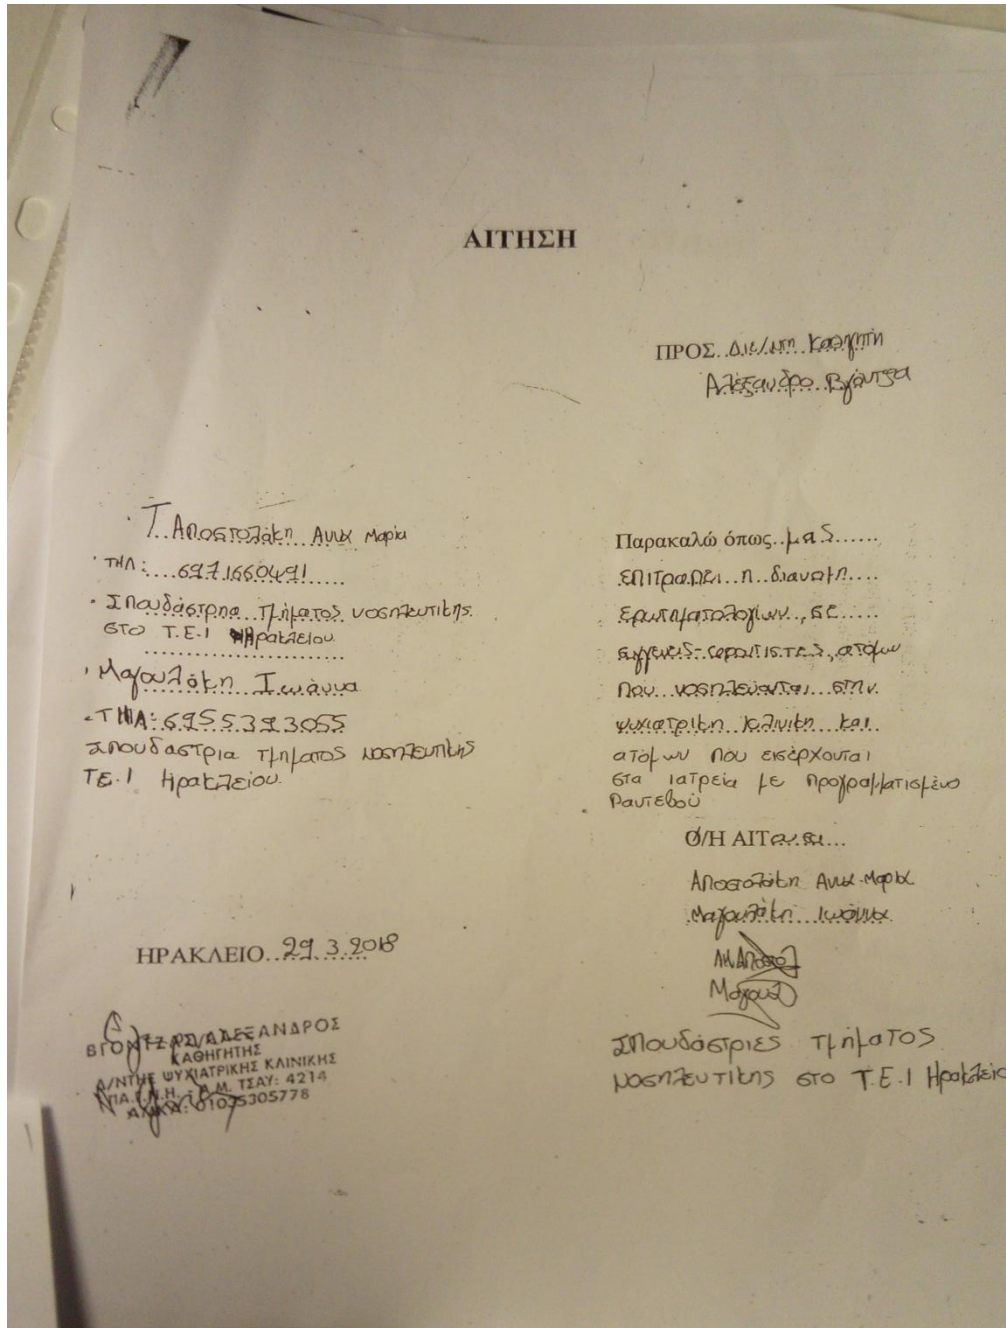 ΑΙΤΗΣΗ
ΠΡΟΣ. Δι/ντη Καθηγητή
Αλέξανδρο Βγόντζα
Αποστολάκη Αννα Μαρία
ΤΗΛ: 6971660491
Σπουδάστρηα τμήματος νοσηλευτικης
στο Τ.Ε.Ι Ηρακλείου
Μαγουλάκη Ιωάννα
ΤΗΛ: 6955393055
Σπουδάστρια τμήματος νοσηλευτικής
ΤΕ.Ι Ηρακλείου.
Παρακαλώ όπως μας
επιτραπει η διανομη
ερωτηματολογίων, σε
συγγενεις-φροντιστες, ατόμων
που νοσηλεύονται στην
ψυχιατρικη κλινικη και
ατόμων που εισέρχονται
στα ιατρεία με προγραμματισμένο
Ραντεβού
Ο/Η ΑΙΤ
Αποστολάκη Αννα-Μαρία
Μαγουλάκη Ιωάννα
Μαγουλ
Σπουδάστριες τμήματος
νοσηλευτικης στο Τ.Ε.Ι Ηρακλείο
ΗΡΑΚΛΕΙΟ 29.3.2018
ΒΓΟΝΤΖΑΣ ΑΛΕΞΑΝΔΡΟΣ
ΚΑΘΗΓΗΤΗΣ
Δ/ΝΤΗΣ ΨΥΧΙΑΤΡΙΚΗΣ ΚΛΙΝΙΚΗΣ
ΠΑ.Γ.Ν.Η. Α.Μ. ΤΣΑΥ: 4214